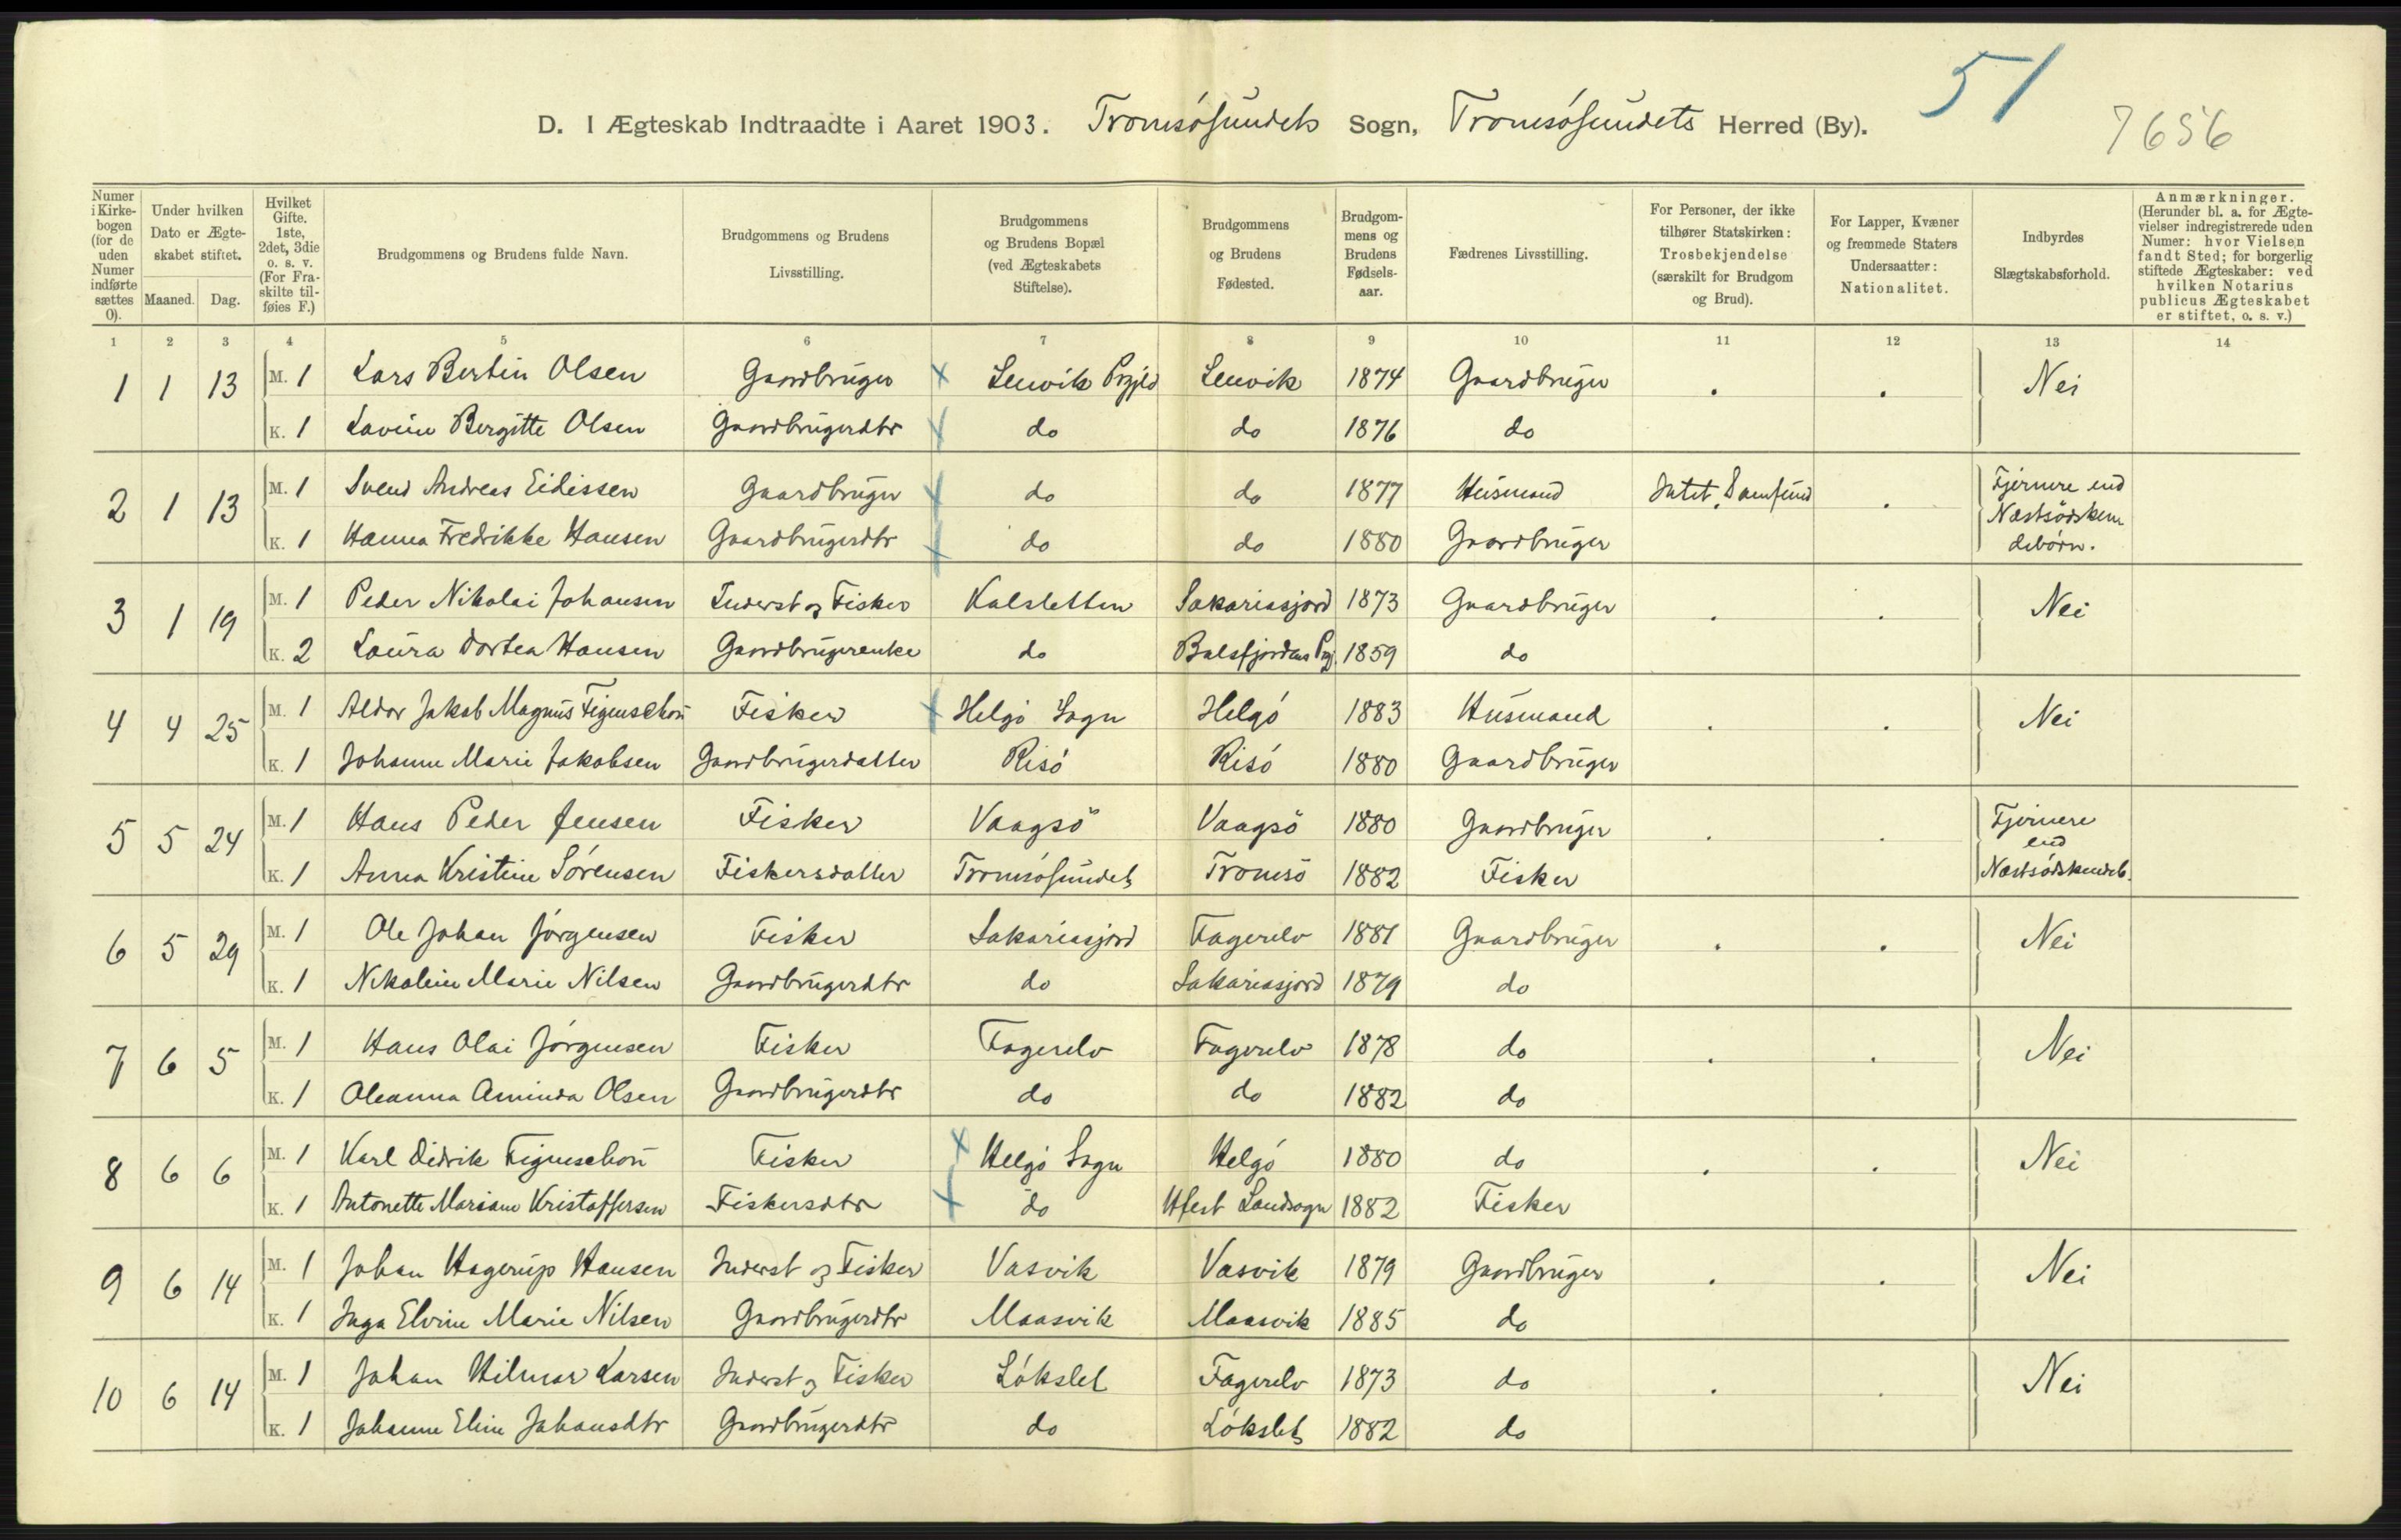 51
7656
D. I Ægteskab Indtraadte i Aaret 1903. Tromsøsundets Sogn, Tromsøsundets Herred (By).
Numer i Kirkebogen (for de uden Numer indførte sættes 0).
Under hvilken Dato er Ægteskabet stiftet.
Maaned. Dag.
Hvilket Gifte. 1ste, 2det, 3die o. s. v. (For Fraskilte tilføies F.)
Brudgommens og Brudens fulde Navn.
Brudgommens og Brudens Livsstilling.
Brudgommens og Brudens Bopæl (ved Ægteskabets Stiftelse).
Brudgommens og Brudens Fødested.
Brudgommens og Brudens Fødselsaar.
Fædrenes Livsstilling.
For Personer, der ikke tilhører Statskirken: Trosbekjendelse (særskilt for Brudgom og Brud).
For Lapper, Kvæner og fremmede Staters Undersaatter: Nationalitet.
Indbyrdes Slægtskabsforhold.
Anmærkninger. (Herunder bl. a. for Ægtevielser indregistrerede uden Numer: hvor Vielsen fandt Sted; for borgerlig stiftede Ægteskaber: ved hvilken Notarius publicus Ægteskabet er stiftet, o. s. v.)
1 2 3 4 5 6 7 8 9 10 11 12 13 14
1 1 13 M. 1 Lars Bertin Olsen Gaardbruger x Lenvik Prgjld Lenvik 1874 Gaardbruger . . Nei
K. 1 Lavine Bergitte Olsen Gaardbrugerdtr x do do 1876 do
2 1 13 M. 1 Svend Andreas Eidissen Gaardbruger x do do 1877 Husmand Intet Samfund . Fjernere end Næstsødskendebørn.
K. 1 Hanna Fredrikke Hansen Gaardbrugerdtr x do do 1880 Gaardbruger
3 1 19 M. 1 Peder Nikolai Johansen Inderst og Fisker Kalsletten Sakariasjord 1873 Gaardbruger . . Nei
K. 2 Laura Dortea Hansen Gaardbrugerenke do Balsfjordens Prgj. 1859 do
4 4 25 M. 1 Aldor Jakob Magnus Figenschou Fisker x Helgø Sogn Helgø 1883 Husmand . . Nei
K. 1 Johanne Marie Jakobsen Gaardbrugerdatter Risø Risø 1880 Gaardbruger
5 5 24 M. 1 Hans Peder Jensen Fisker Vaagsö Vaagsö 1880 Gaardbruger . . Fjernere end Næstsødskendeb.
K. 1 Anna Kristine Sørensen Fiskersdatter Tromsøsundets Tromsø 1882 Fisker
6 5 29 M. 1 Ole Johan Jørgensen Fisker Sakariasjord Fagerelv 1881 Gaardbruger . . Nei
K. 1 Nikoline Marie Nilsen Gaardbrugerdtr do Sakariasjord 1879 do
7 6 5 M. 1 Hans Olai Jørgensen Fisker Fagerelv Fagerelv 1878 do . . Nei
K. 1 Oleanna Aminda Olsen Gaardbrugerdtr do do 1882 do
8 6 6 M. 1 Karl Didrik Figenschou Fisker x Helgø Sogn Helgø 1880 do . . Nei
K. 1 Antonette Mariane Kristoffersen Fiskersdtr x do Hfest Landsogn 1882 Fisker
9 6 14 M. 1 Johan Hagerup Hansen Inderst og Fisker Vasvik Vasvik 1879 Gaardbruger . . Nei
K. 1 Inga Elvine Marie Nilsen Gaardbrugerdtr Maasvik Maasvik 1885 do
10 6 14 M. 1 Johan Hilmar Larsen Inderst og Fisker Løkslet Fagerelv 1873 do . . Nei
K. 1 Johanne Eline Johansdtr Gaardbrugerdtr do Løkslet 1882 do